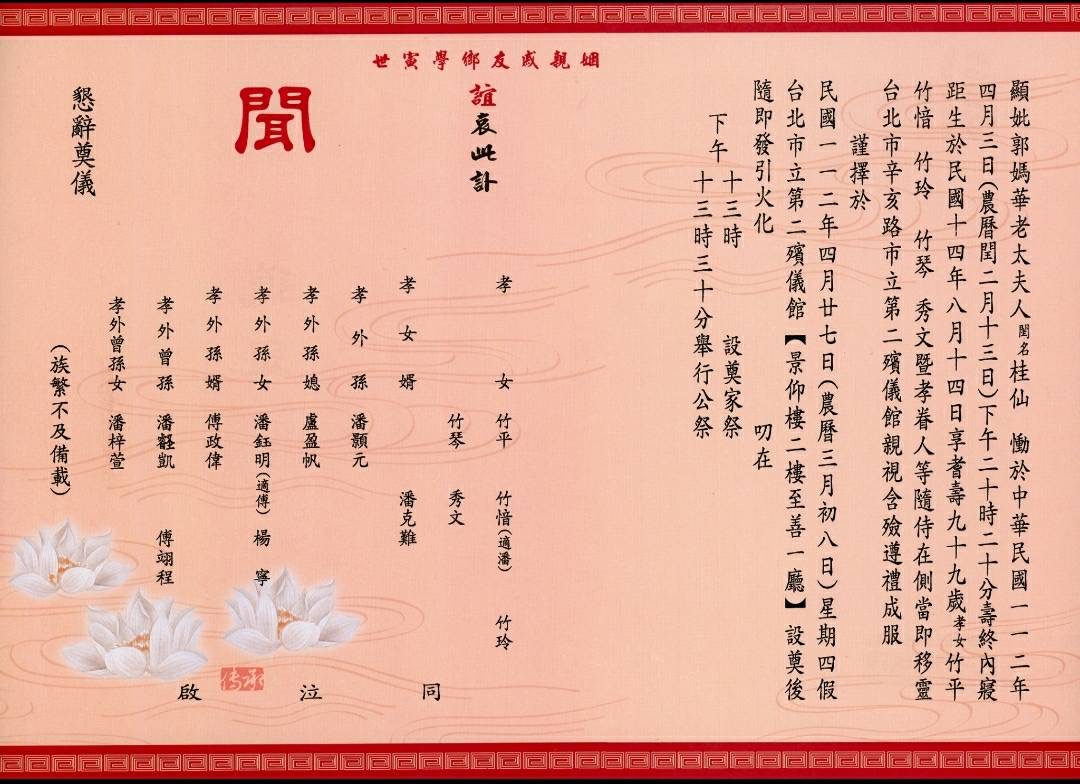 顯妣郭媽華老太夫人閨名桂仙 慟於中華民國一一二年
四月三日(農曆閏二月十三日)下午二十時二十分壽終內寢
距生於民國十四年八月十四日享耆壽九十九歲孝女竹平
竹愔 竹玲 竹琴 秀文暨孝眷人等隨侍在側當即移靈
台北市辛亥路市立第二殯儀館親視含殮遵禮成服
謹擇於
民國一一二年四月廿七日(農曆三月初八日)星期四假
台北市立第二殯儀館【景仰樓二樓至善一廳】設奠後
隨即發引火化 叨在
下午 十三時 設奠家祭
十三時三十分舉行公祭
姻親戚友鄉學寅世
誼哀此訃
聞
懇辭奠儀
孝女 竹平 竹愔(適潘) 竹玲
竹琴 秀文
孝女婿 潘克難
孝外孫 潘顥元
孝外孫媳 盧盈帆
孝外孫女 潘鈺明(適傅) 楊寧
孝外孫婿 傅政偉
孝外曾孫 潘凱 傅翊程
孝外曾孫女 潘梓萱
(族繁不及備載)
同泣啟
传承